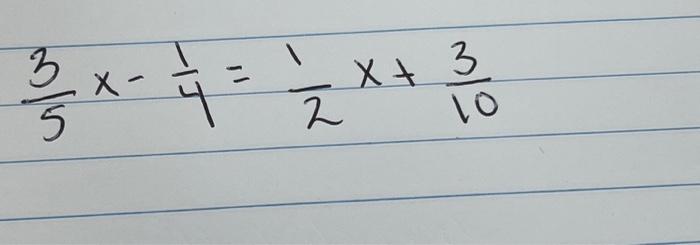 3/5 x - 1/4 = 1/2 x + 3/10